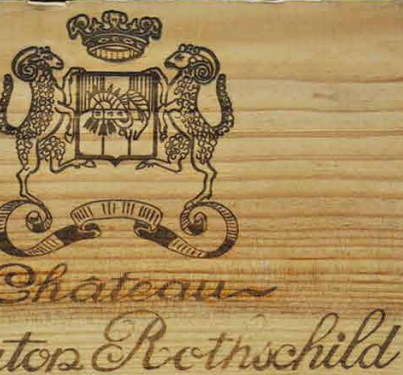 Château
uton Rothschild